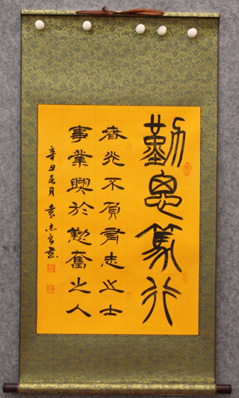 勤思篤行
春光不負有志之士
事業興於懃奮之人
辛丑 月 袁 書